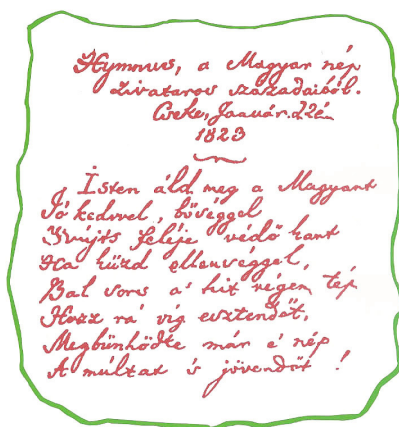 Hymnus, a Magyar nép
zivataros századaiból.
Cseke, Január. 22én
1823
Isten áld meg a Magyart
Jó kedvvel, bőséggel
Nyújts feléje védő kart
Ha küzd ellenséggel,
Bal sors a' kit régen tép
Hozz rá víg esztendőt,
Megbünhödte már e' nép
A múltat 's jövendőt !